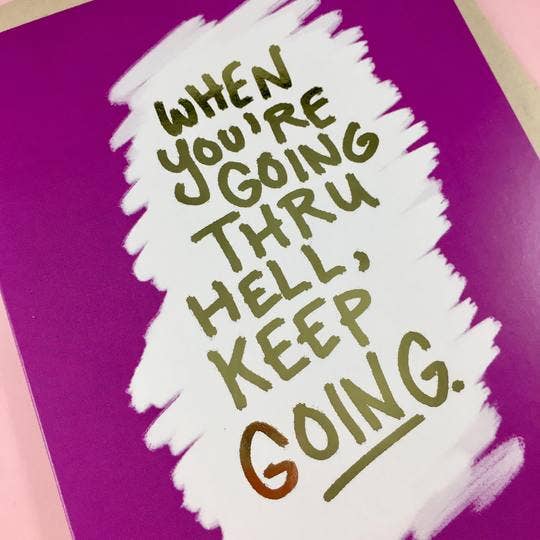 WHEN
YOU'RE
GOING
THRU
HELL,
KEEP
GOING.